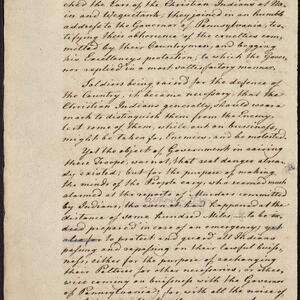 ched the Ears of the Christian Indians of Na-
in and Wequetank, they joined in an humble
address to the Governor of Pennsylvania, tes-
tifying their abhorrence of the cruelties com-
mitted by their Countrymen, and begging
his Excellency's protection, to which the Gover-
nor replied in a most satisfactory manner.
Soldiers being raised for the defence of
the Country, it became necessary, that the
Christian Indians generally, should wear a
mark to distinguish them from the Enemy,
lest some of them, while out on business,
might be taken for Enemies and be molested.
Yet the object of Government in raising
these Troops, was not, that real dangers alrea-
dy existed; but for the purpose of making
the minds of the People easy, who seemed much
alarmed at the reports of Murders committed
by Indians, the even at had happened at the
distance of some hundred Miles — to be in-
deed prepared in case of an emergency,
to protect and guard. If Indians
passing and repassing on their lawful busi-
ness, either for the purpose of exchanging
their Peltries for other necessaries, or other-
wise coming on business with the Governor
of Pennsylvania; for, with all the noise of